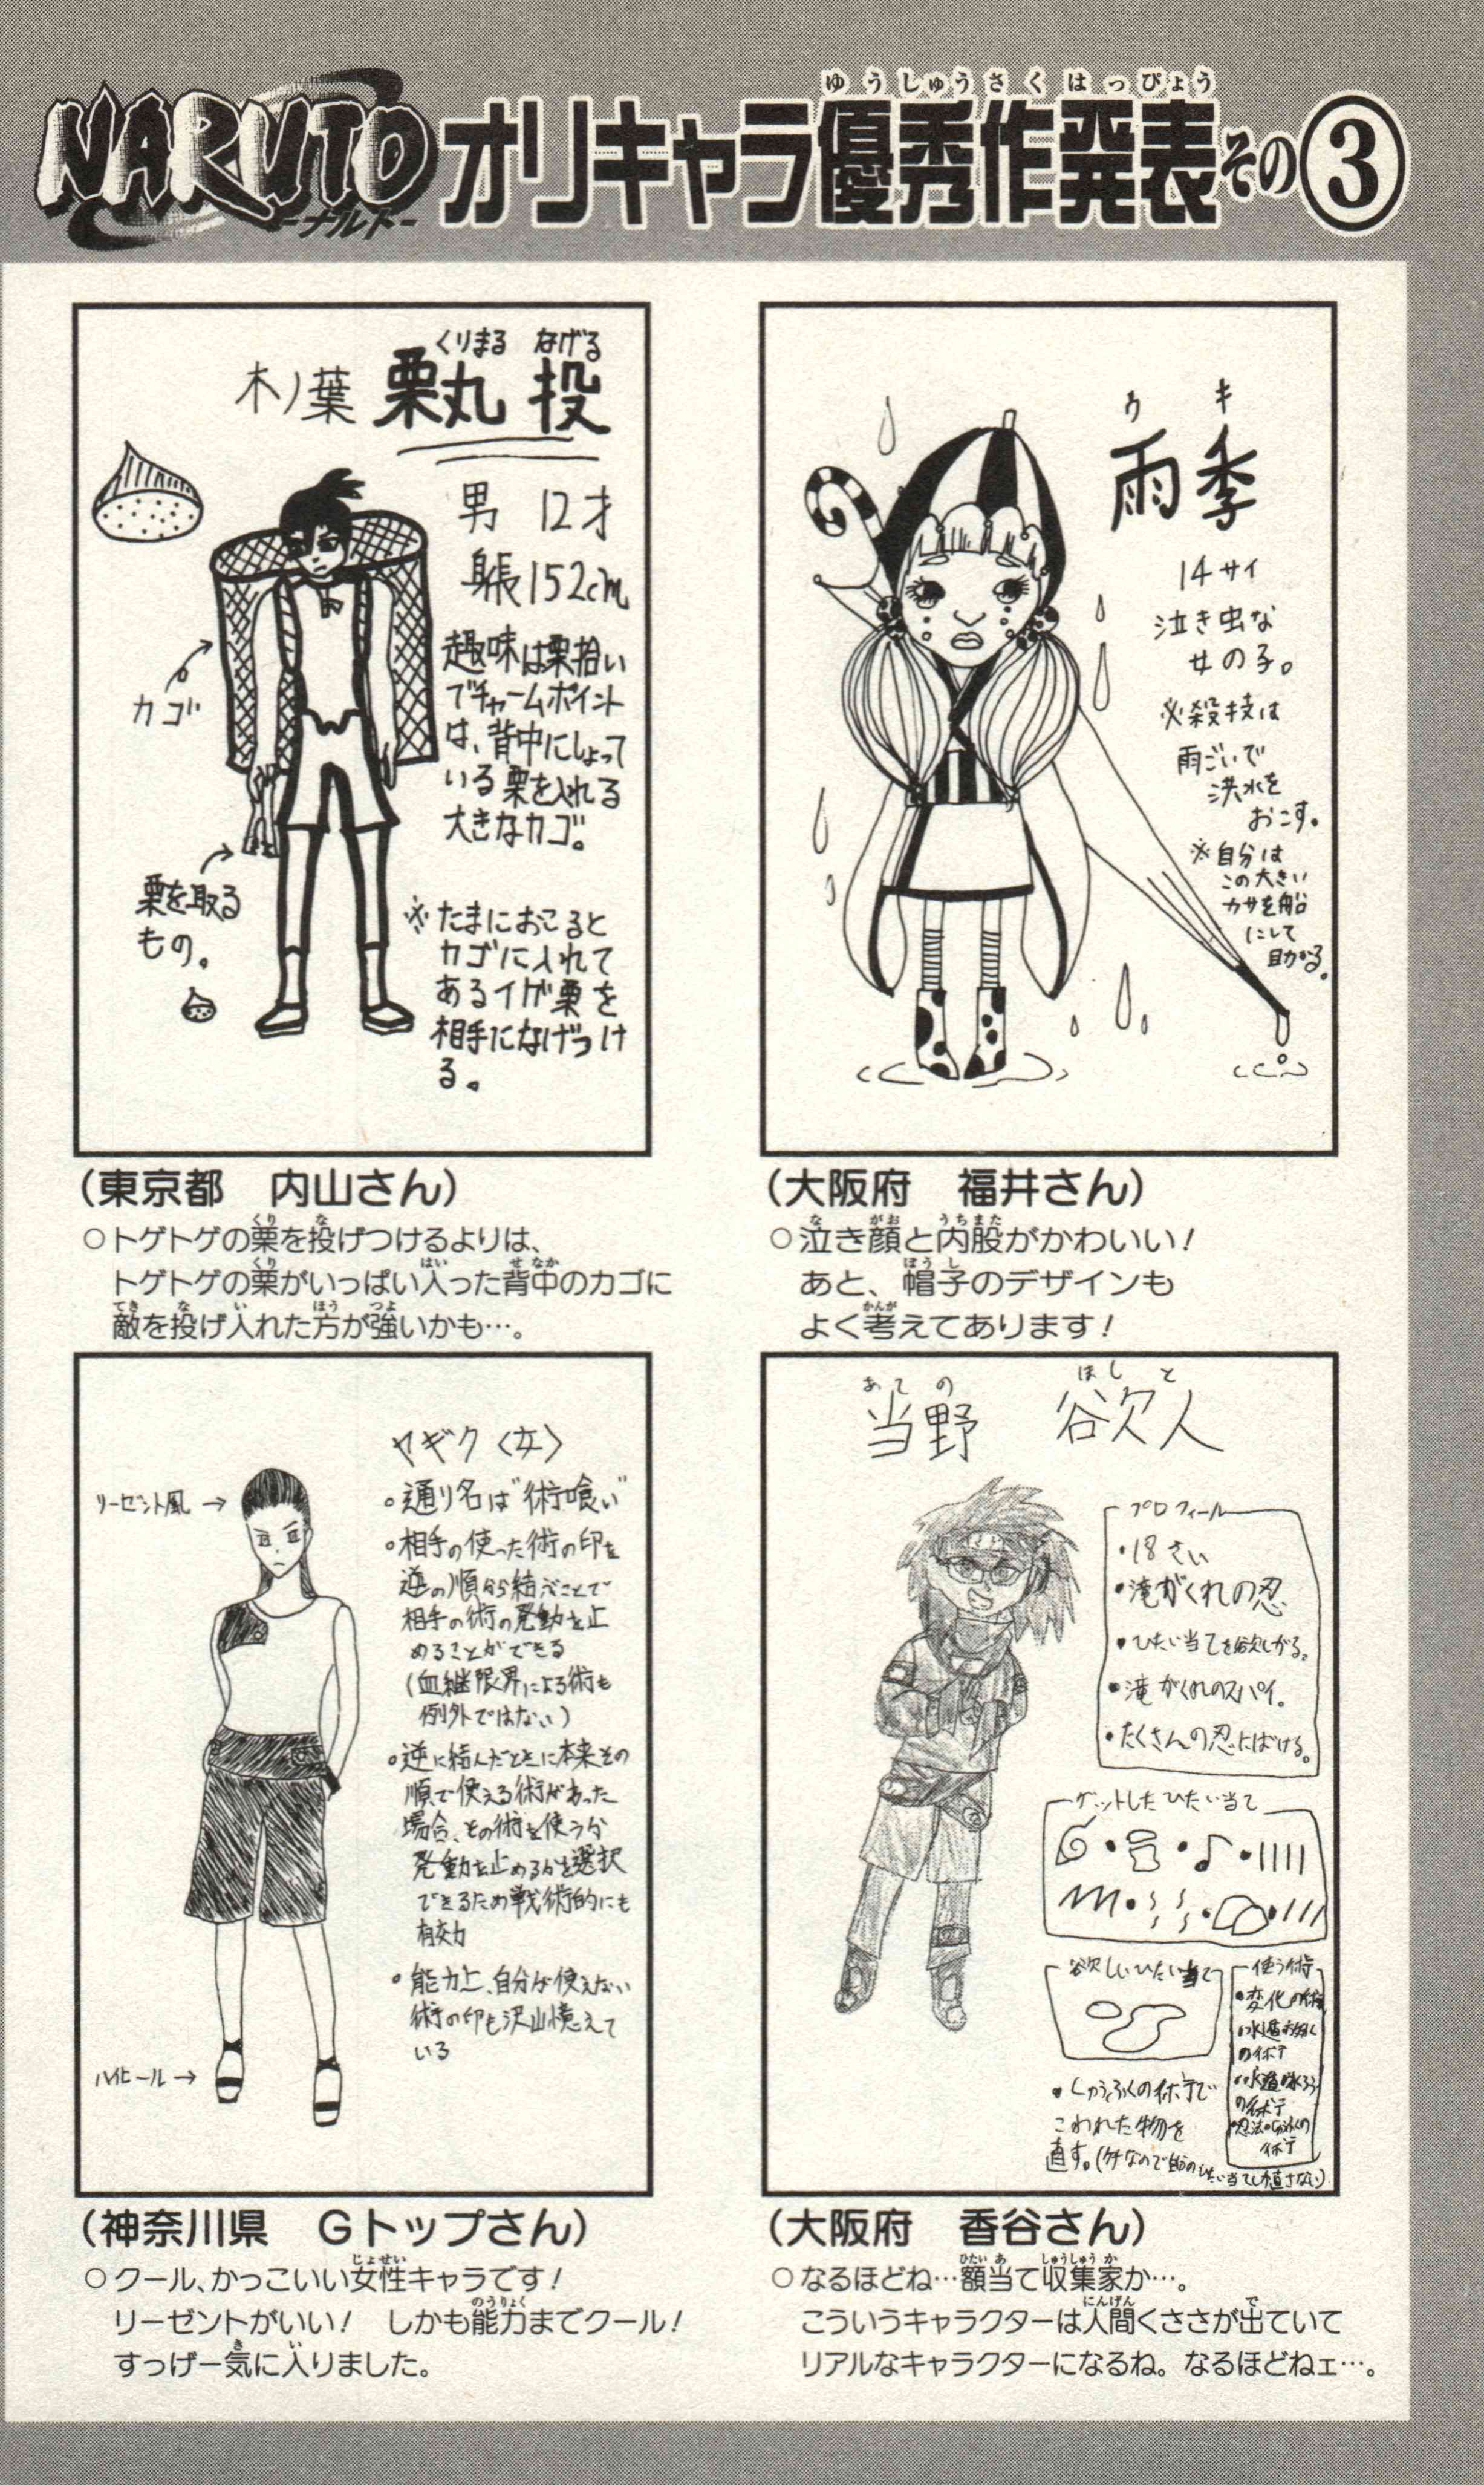 NARUTO
ーナルトー
オリキャラ優秀作発表その③
ゆうしゅうさくはっぴょう
くりまる なげる
木ノ葉 栗丸 投
男 12才
身長152cm
趣味は栗拾い
でチャームポイント
は、背中にしょって
いる栗を入れる
大きなカゴ。
カゴ
栗を取る
もの。
※たまにおこると
カゴに入れて
あるイガ栗を
相手になげつけ
る。
(東京都 内山さん)
○トゲトゲの栗を投げつけるよりは、
トゲトゲの栗がいっぱい入った背中のカゴに
敵を投げ入れた方が強いかも…。
ウキ
雨季
14サイ
泣き虫な
女の子。
必殺技は
雨ごいで
洪水を
おこす。
※自分は
この大きい
カサを船
にして
助かる。
(大阪府 福井さん)
○泣き顔と内股がかわいい!
あと、帽子のデザインも
よく考えてあります!
ヤギク〈女〉
リーゼント風→
。通り名は"術喰い"
。相手の使った術の印を
逆の順から結ぶことで
相手の術の発動を止
めることができる
(血継限界による術も
例外ではない)
。逆に結んだときに本来その
順で使える術があった
場合、その術を使うか
発動を止めるかを選択
できるため戦術的にも
有効
。能力上、自分が使えない
術の印も沢山憶えて
いる
ハイヒール→
(神奈川県 Gトップさん)
○クール、かっこいい女性キャラです!
リーゼントがいい! しかも能力までクール!
すっげー気に入りました。
あての ほしと
当野 欲人
プロフィール
・18さい
・滝がくれの忍
・ひたい当てを欲しがる。
・滝がくれのスパイ。
・たくさんの忍にばける。
ゲットしたひたい当て
欲しいひたい当て
使う術
・変化の術
・しゅうふくの術で
こわれた物を
直す。(ケチなので自分のひたい当てしか直さない)
(大阪府 香谷さん)
○なるほどね…額当て収集家か…。
こういうキャラクターは人間くささが出ていて
リアルなキャラクターになるね。なるほどねェ…。